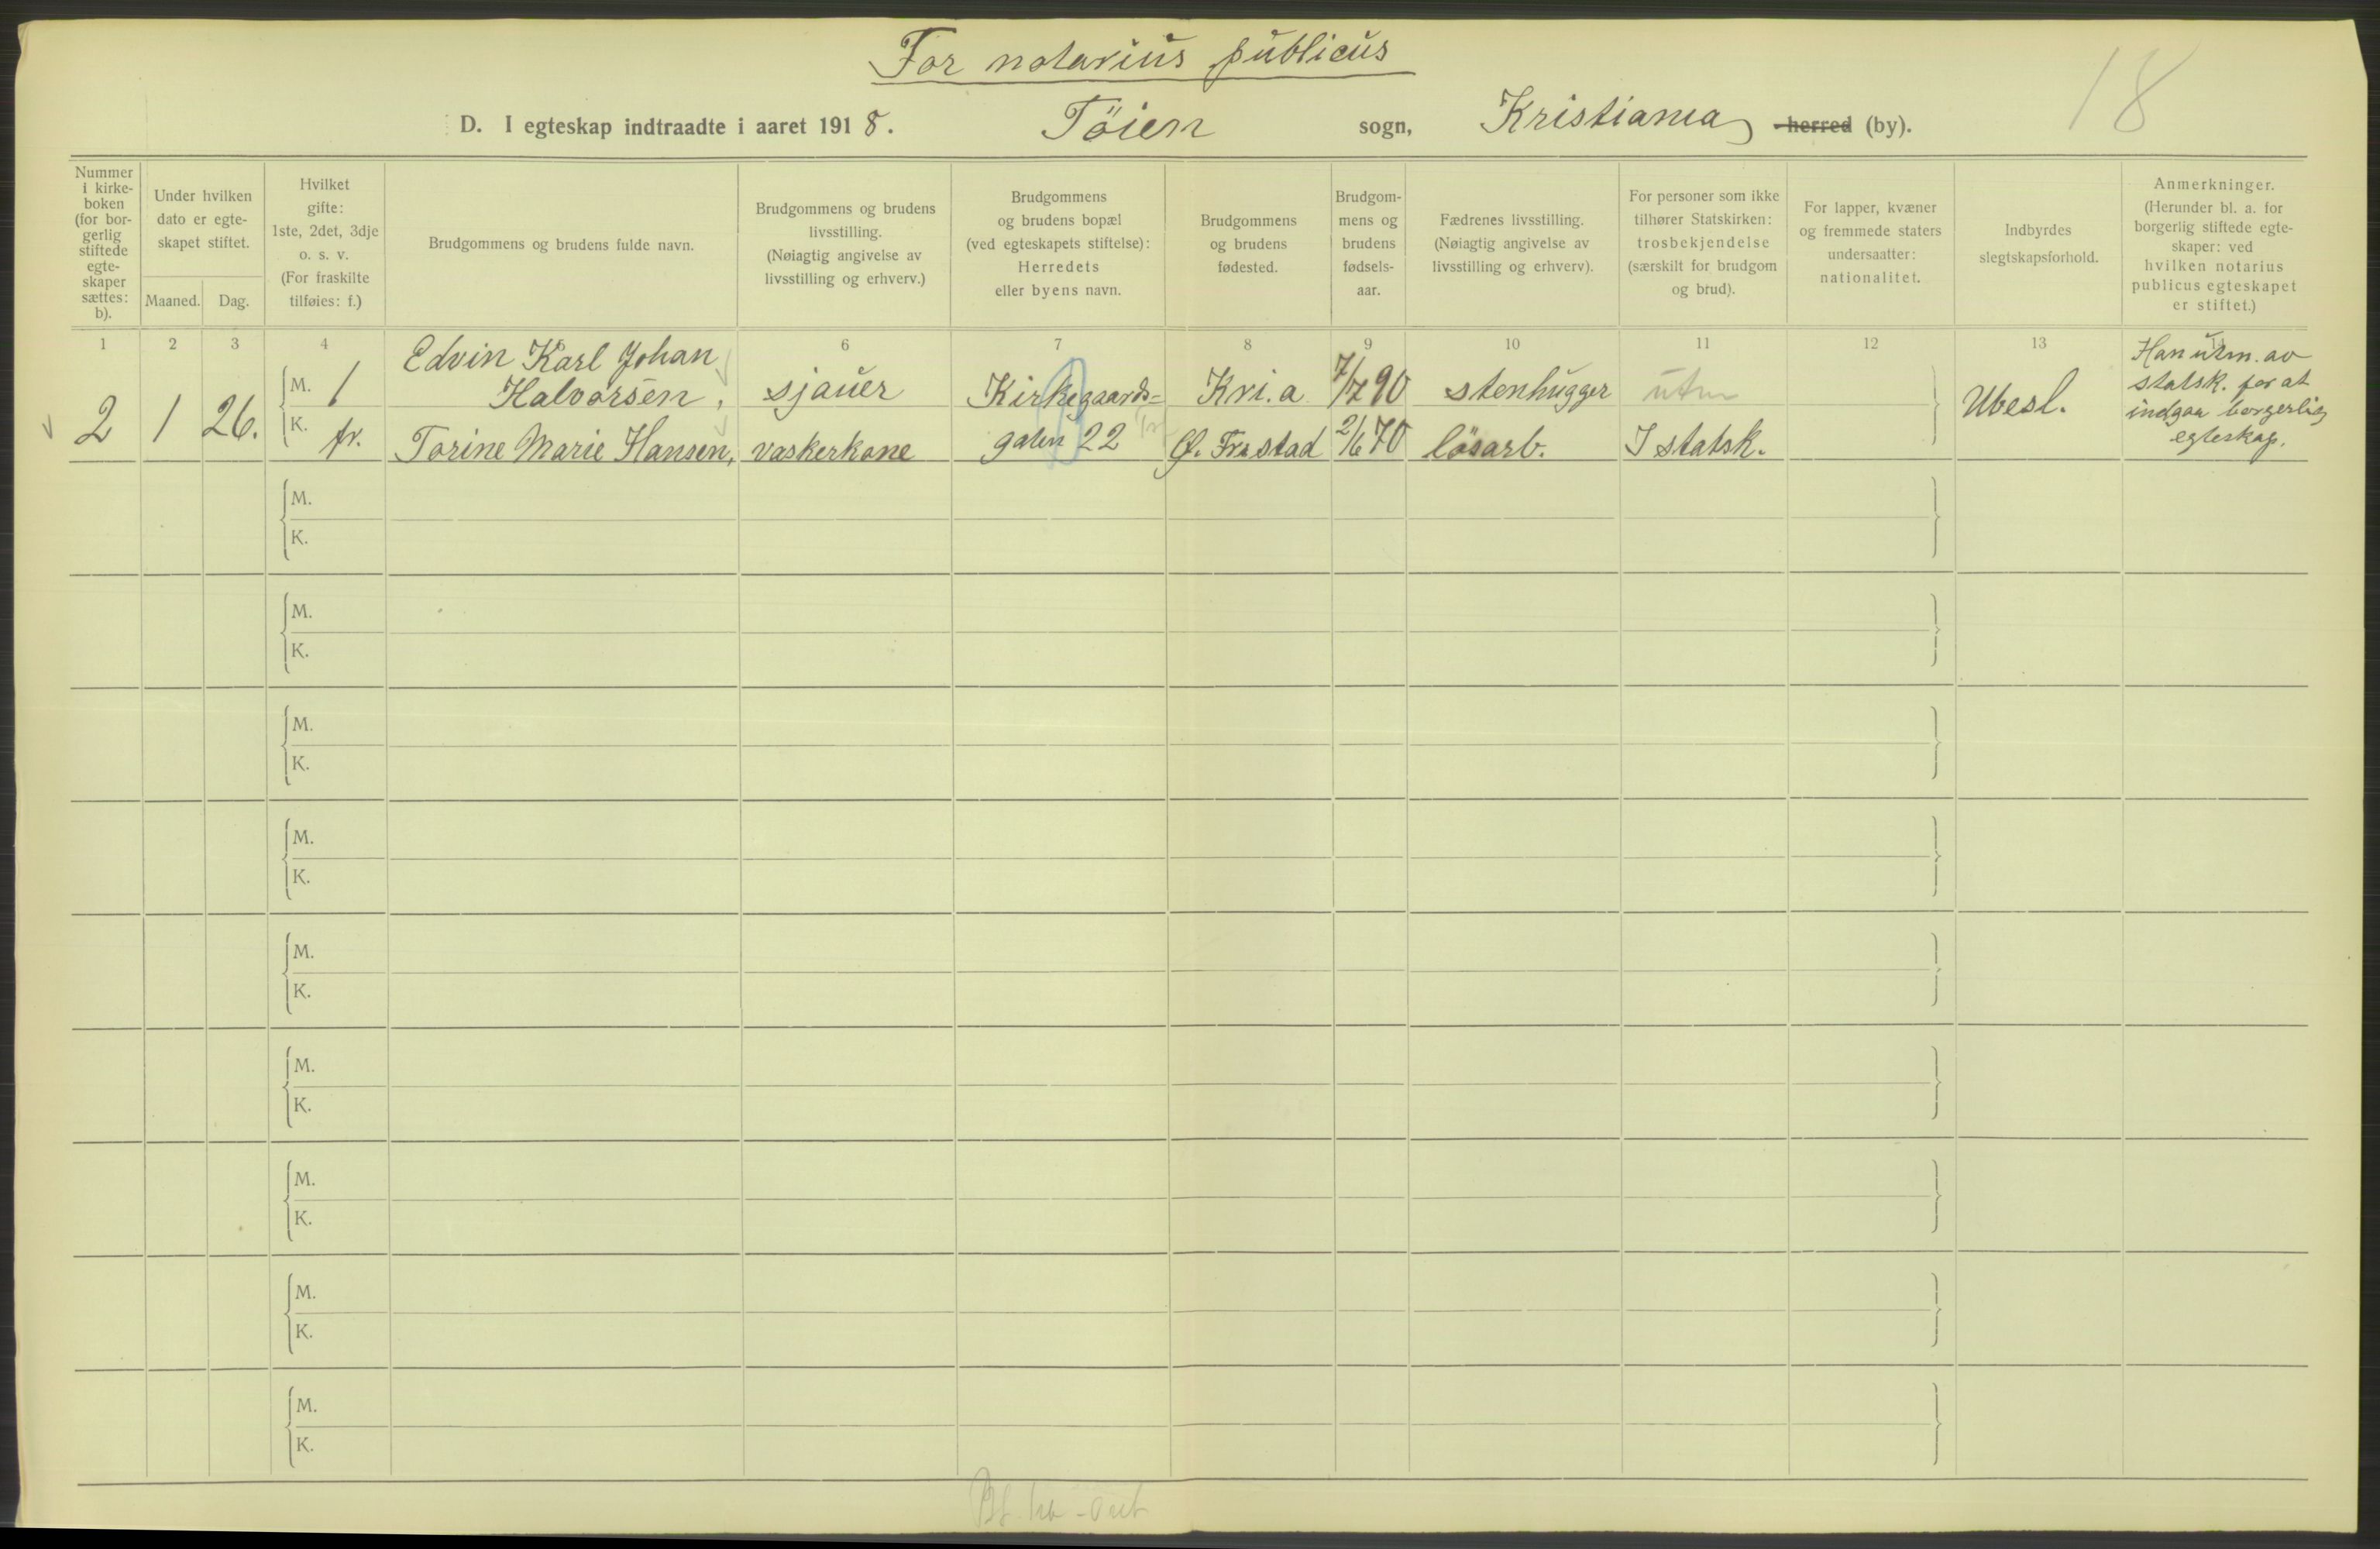 For notarius publicus
18
D. I egteskap indtraadte i aaret 1918. Töien sogn, Kristiania herred (by).
Nummer i kirke- boken (for bor- gerlig stiftede egte- skaper sættes: b).
Under hvilken dato er egte- skapet stiftet.
Maaned. Dag.
Hvilket gifte: 1ste, 2det, 3dje o. s. v. (For fraskilte tilføies: f.)
Brudgommens og brudens fulde navn.
Brudgommens og brudens livsstilling. (Nøiagtig angivelse av livsstilling og erhverv.)
Brudgommens og brudens bopæl (ved egteskapets stiftelse): Herredets eller byens navn.
Brudgommens og brudens fødested.
Brudgom- mens og brudens fødsels- aar.
Fædrenes livsstilling. (Nøiagtig angivelse av livsstilling og erhverv).
For personer som ikke tilhører Statskirken: trosbekjendelse (særskilt for brudgom og brud).
For lapper, kvæner og fremmede staters undersaatter: nationalitet.
Indbyrdes slegtskapsforhold.
Anmerkninger. (Herunder bl. a. for borgerlig stiftede egte- skaper: ved hvilken notarius publicus egteskapet er stiftet.)
1 2 3 4 6 7 8 9 10 11 12 13
2 1 26.
M. 1 Edvin Karl Johan
Halvorsen, sjauer Kirkegaards= Kri.a 7/7 90 stenhugger utm
K. fr. Torine Marie Hansen, vaskerkone gaten 22 Gl. Fr.stad 2/6 70 lösarb. I statsk.
Ubesl.
Han utm. av
statsk. for at
indgaa borgerlig
egteskap.
M.
K.
M.
K.
M.
K.
M.
K.
M.
K.
M.
K.
M.
K.
M.
K.
M.
K.